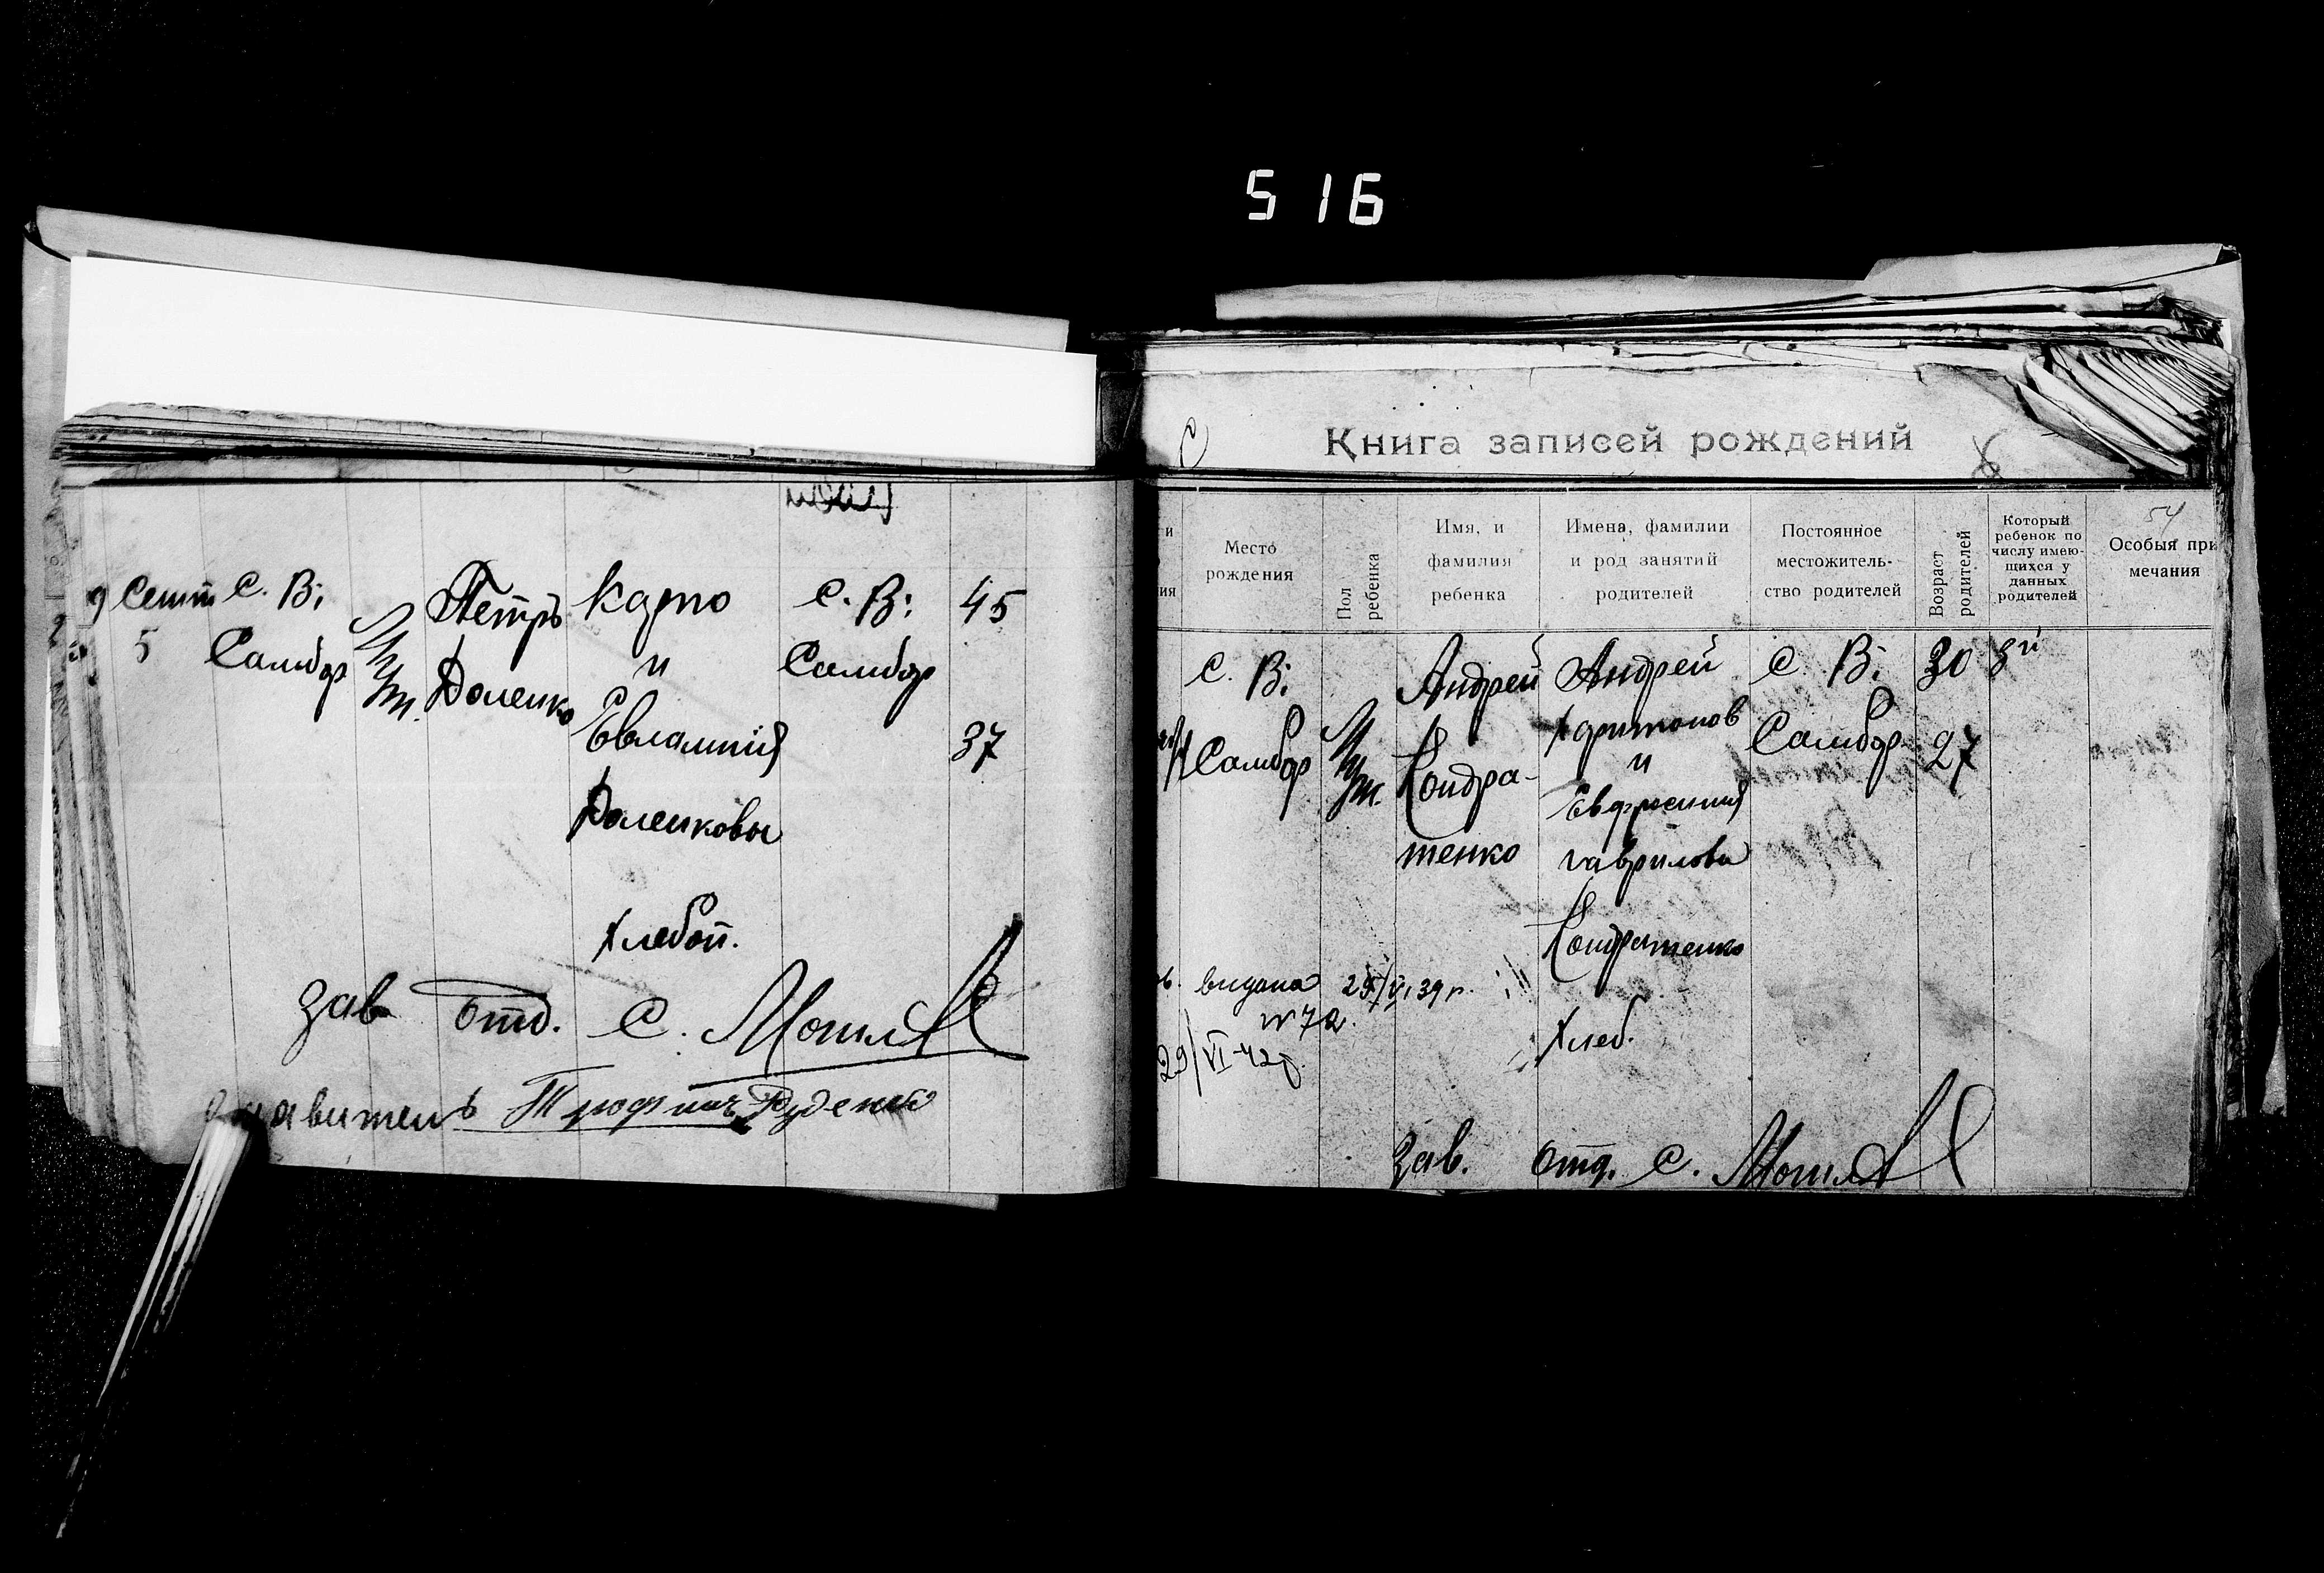 516
9 Сент С. В;
5 Самбор
Муж.
Петръ
Доленко
Карпо
и
Евлампия
Доленковы
Хлебоп.
С. В;
Самбор
45
37
Зав отд. С.
Руденко
Книга записей рождений
54
Место
рождения
Пол
ребенка
Имя, и
фамилия
ребенка
Имена, фамилии
и род занятий
родителей
Постоянное
местожитель-
ство родителей
Возраст
родителей
Который
ребенок по
числу имею-
щихся у
данных
родителей
Особыя при
мечания
С. В;
Самбор
Муж.
Андрей
Кондра-
тенко
Андрей
Харитонов
и
Евфросиния
Гаврилова
Кондратенко
Хлеб.
С. В;
Самбор
30
27
3й
видана
39 г.
№ 72.
29/VI-42р.
Зав. отд. С.